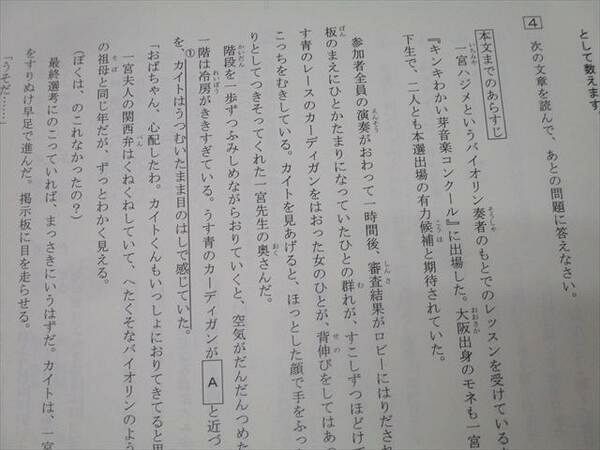 として数えます。
4 次の文章を読んで、あとの問題に答えなさい。
本文までのあらすじ
一宮ハジメというバイオリン奏者のもとでのレッスンを受けている
『キンキわかい芽音楽コンクール』に出場した。大阪出身のモネも一宮
下生で、二人とも本選出場の有力候補と期待されていた。
参加者全員の演奏がおわって一時間後、審査結果がロビーにはりだされ
板のまえにひとかたまりになっていたひとの群れが、すこしずつほどけて
す青のレースのカーディガンをはおった女のひとが、背伸びをしてはあっ
こっちをむきしている。カイトを見あげると、ほっとした顔で手をふっ
りとしてつきそってくれた一宮先生の奥さんだ。
階段を一歩ずつふみしめながらおりていくと、空気がだんだんつめた
一階は冷房がききすぎている。うす青のカーディガンが A と近づ
を、①カイトはうつむいたまま目のはしで感じていた。
「おばちゃん、心配したわ。カイトくんもいっしょにおりてきてると思
一宮夫人の関西弁はくねくねしていて、へたくそなバイオリンのよう
の祖母と同じ年だが、ずっとわかく見える。
（ぼくは、のこれなかったの？）
最終選考にのこっていれば、まっさきにいうはずだ。カイトは、一宮
をすりぬけ早足で進んだ。掲示板に目を走らせる。
「うそだ……」